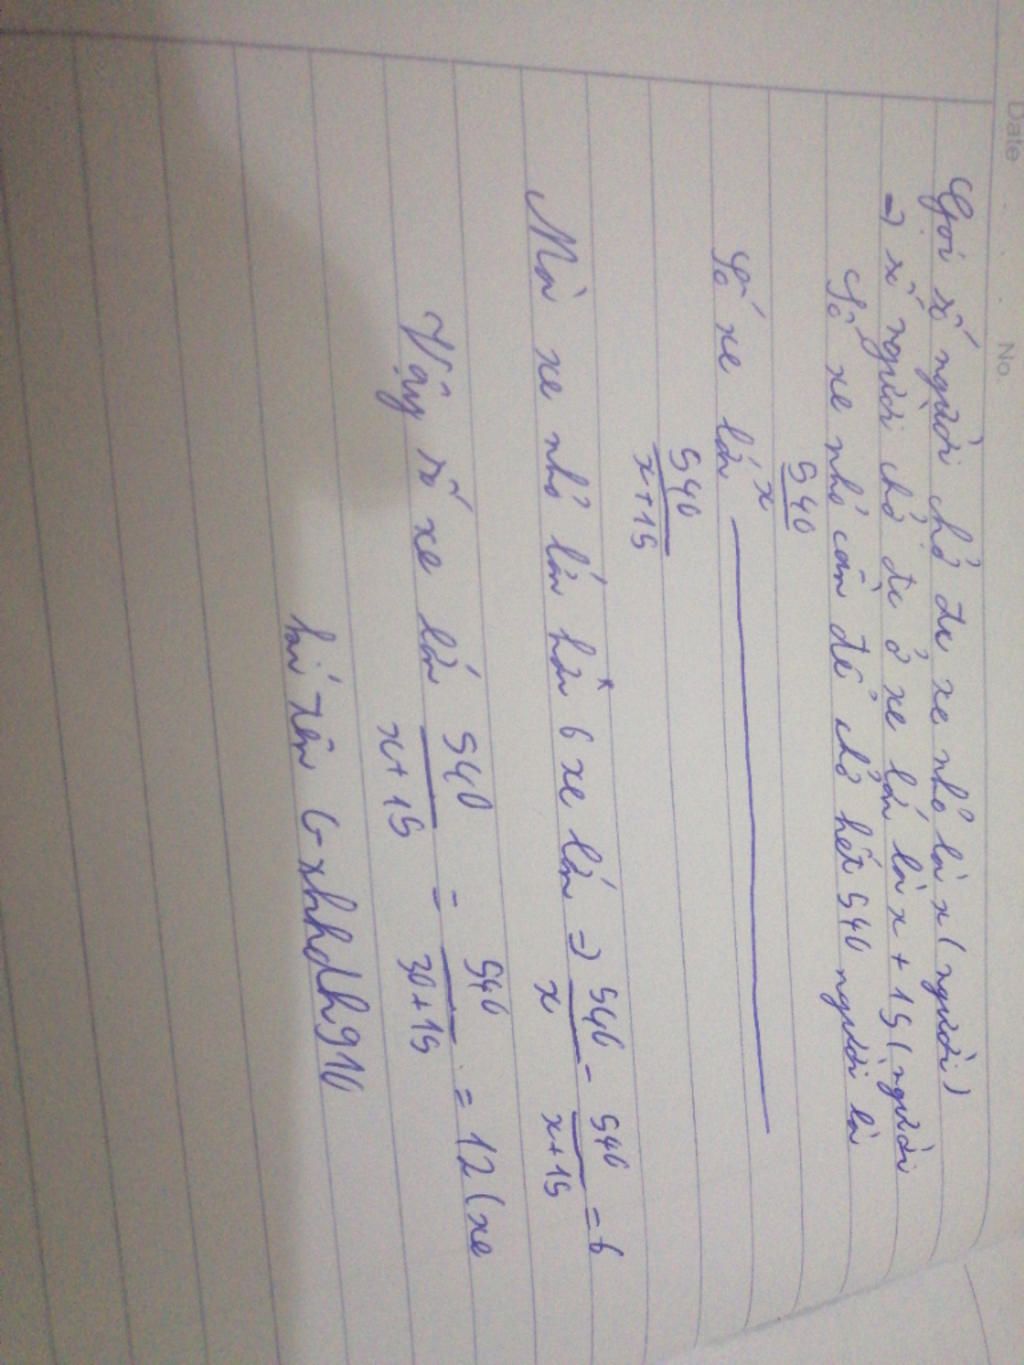 Date No.
Gọi số người chở đc xe nhỏ là x (người)
=) số người chở đc ở xe lớn là x + 15 (người
Số xe nhỏ cần để chở hết 540 người là
540
x
Số xe lớn
540
x+15
Mà xe nhỏ lớn hơn 6 xe lớn =) 540/x - 540/x+15 = 6
Vậy số xe lớn 540/x+15 = 540/30+15 = 12 (xe
hái tên Gxhhdhg10